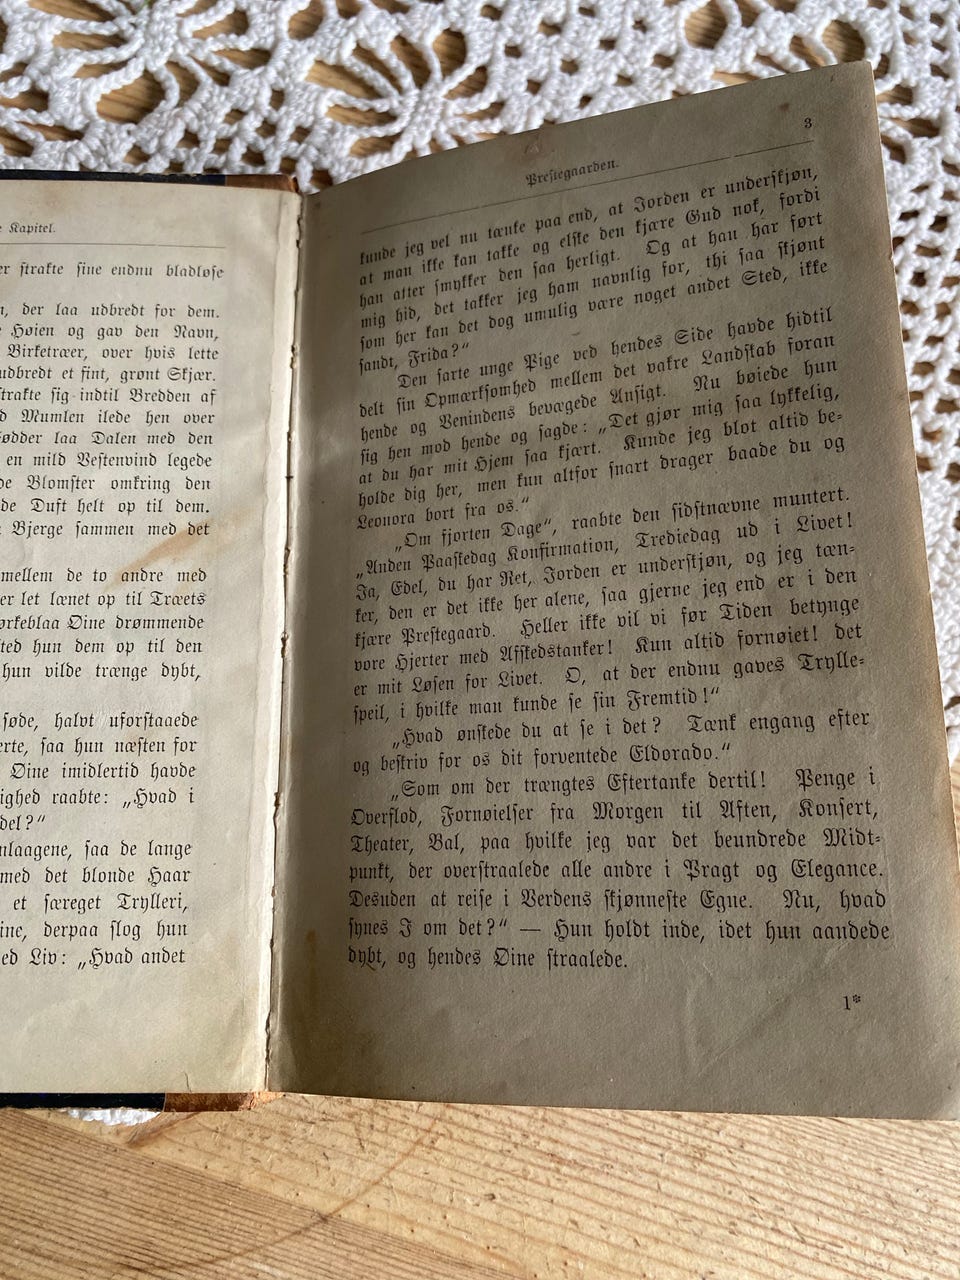 Kapitel.
er strakte sine endnu bladløse
der laa udbredt for dem.
Høien og gav den Navn,
Birketræer, over hvis lette
udbredt et fint, grønt Skjær.
strakte sig indtil Bredden af
Mumlen ilede hen over
laa Dalen med den
en mild Vestenvind legede
Blomster omkring den
Duft helt op til dem.
Bjerge sammen med det
mellem de to andre med
er let lænet op til Træets
Øine drømmende
hun dem op til den
hun vilde trænge dybt,
søde, halvt uforstaaede
saa hun næsten for
Øine imidlertid havde
raabte: „Hvad i
saa de lange
med det blonde Haar
et særeget Trylleri,
derpaa slog hun
Liv: „Hvad andet
Prestegaarden.
3
kunde jeg vel nu tænke paa end, at Jorden er underskjøn,
at man ikke kan takke og elske den kjære Gud nok, fordi
han atter smykker den saa herligt. Og at han har ført
mig hid, det takker jeg ham navnlig for, thi saa skjønt
som her kan det dog umulig være noget andet Sted, ikke
sandt, Frida?“
Den sarte unge Pige ved hendes Side havde hidtil
delt sin Opmærksomhed mellem det vakre Landskab foran
hende og Venindens bevægede Ansigt. Nu bøiede hun
sig hen mod hende og sagde: „Det gjør mig saa lykkelig,
at du har mit Hjem saa kjært. Kunde jeg blot altid be-
holde dig her, men kun altfor snart drager baade du og
Leonora bort fra os.“
„Om fjorten Dage“, raabte den sidstnævne muntert.
„Anden Paaskedag Konfirmation, Trediedag ud i Livet!
Ja, Edel, du har Ret, Jorden er underskjøn, og jeg tæn-
ker, den er det ikke her alene, saa gjerne jeg end er i den
kjære Prestegaard. Heller ikke vil vi før Tiden betynge
vore Hjerter med Afskedstanker! Kun altid fornøiet! det
er mit Løsen for Livet. O, at der endnu gaves Trylle-
speil, i hvilke man kunde se sin Fremtid!“
„Hvad ønskede du at se i det? Tænk engang efter
og beskriv for os dit forventede Eldorado.“
„Som om der trængtes Eftertanke dertil! Penge i
Overflod, Fornøielser fra Morgen til Aften, Konsert,
Theater, Bal, paa hvilke jeg var det beundrede Midt-
punkt, der overstraalede alle andre i Pragt og Elegance.
Desuden at reise i Verdens skjønneste Egne. Nu, hvad
synes I om det?“ — Hun holdt inde, idet hun aandede
dybt, og hendes Øine straalede.
1*